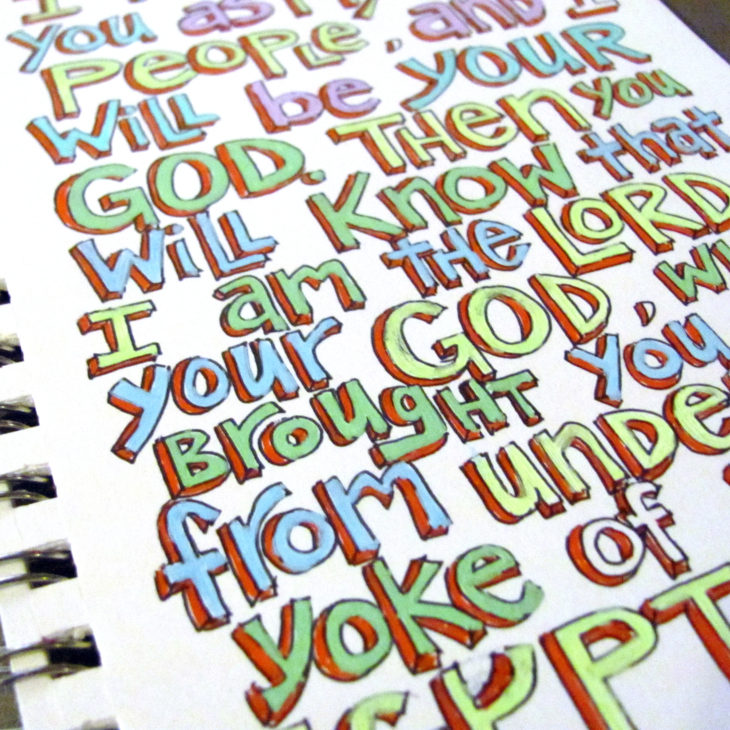 you as my
PeopLe, and I
WiLL be youR
GOD. THen you
WiLL KNOW that
I am THE LORD
your GOD, WH
BrougHT you
from unDe
yoke of
EGYPT